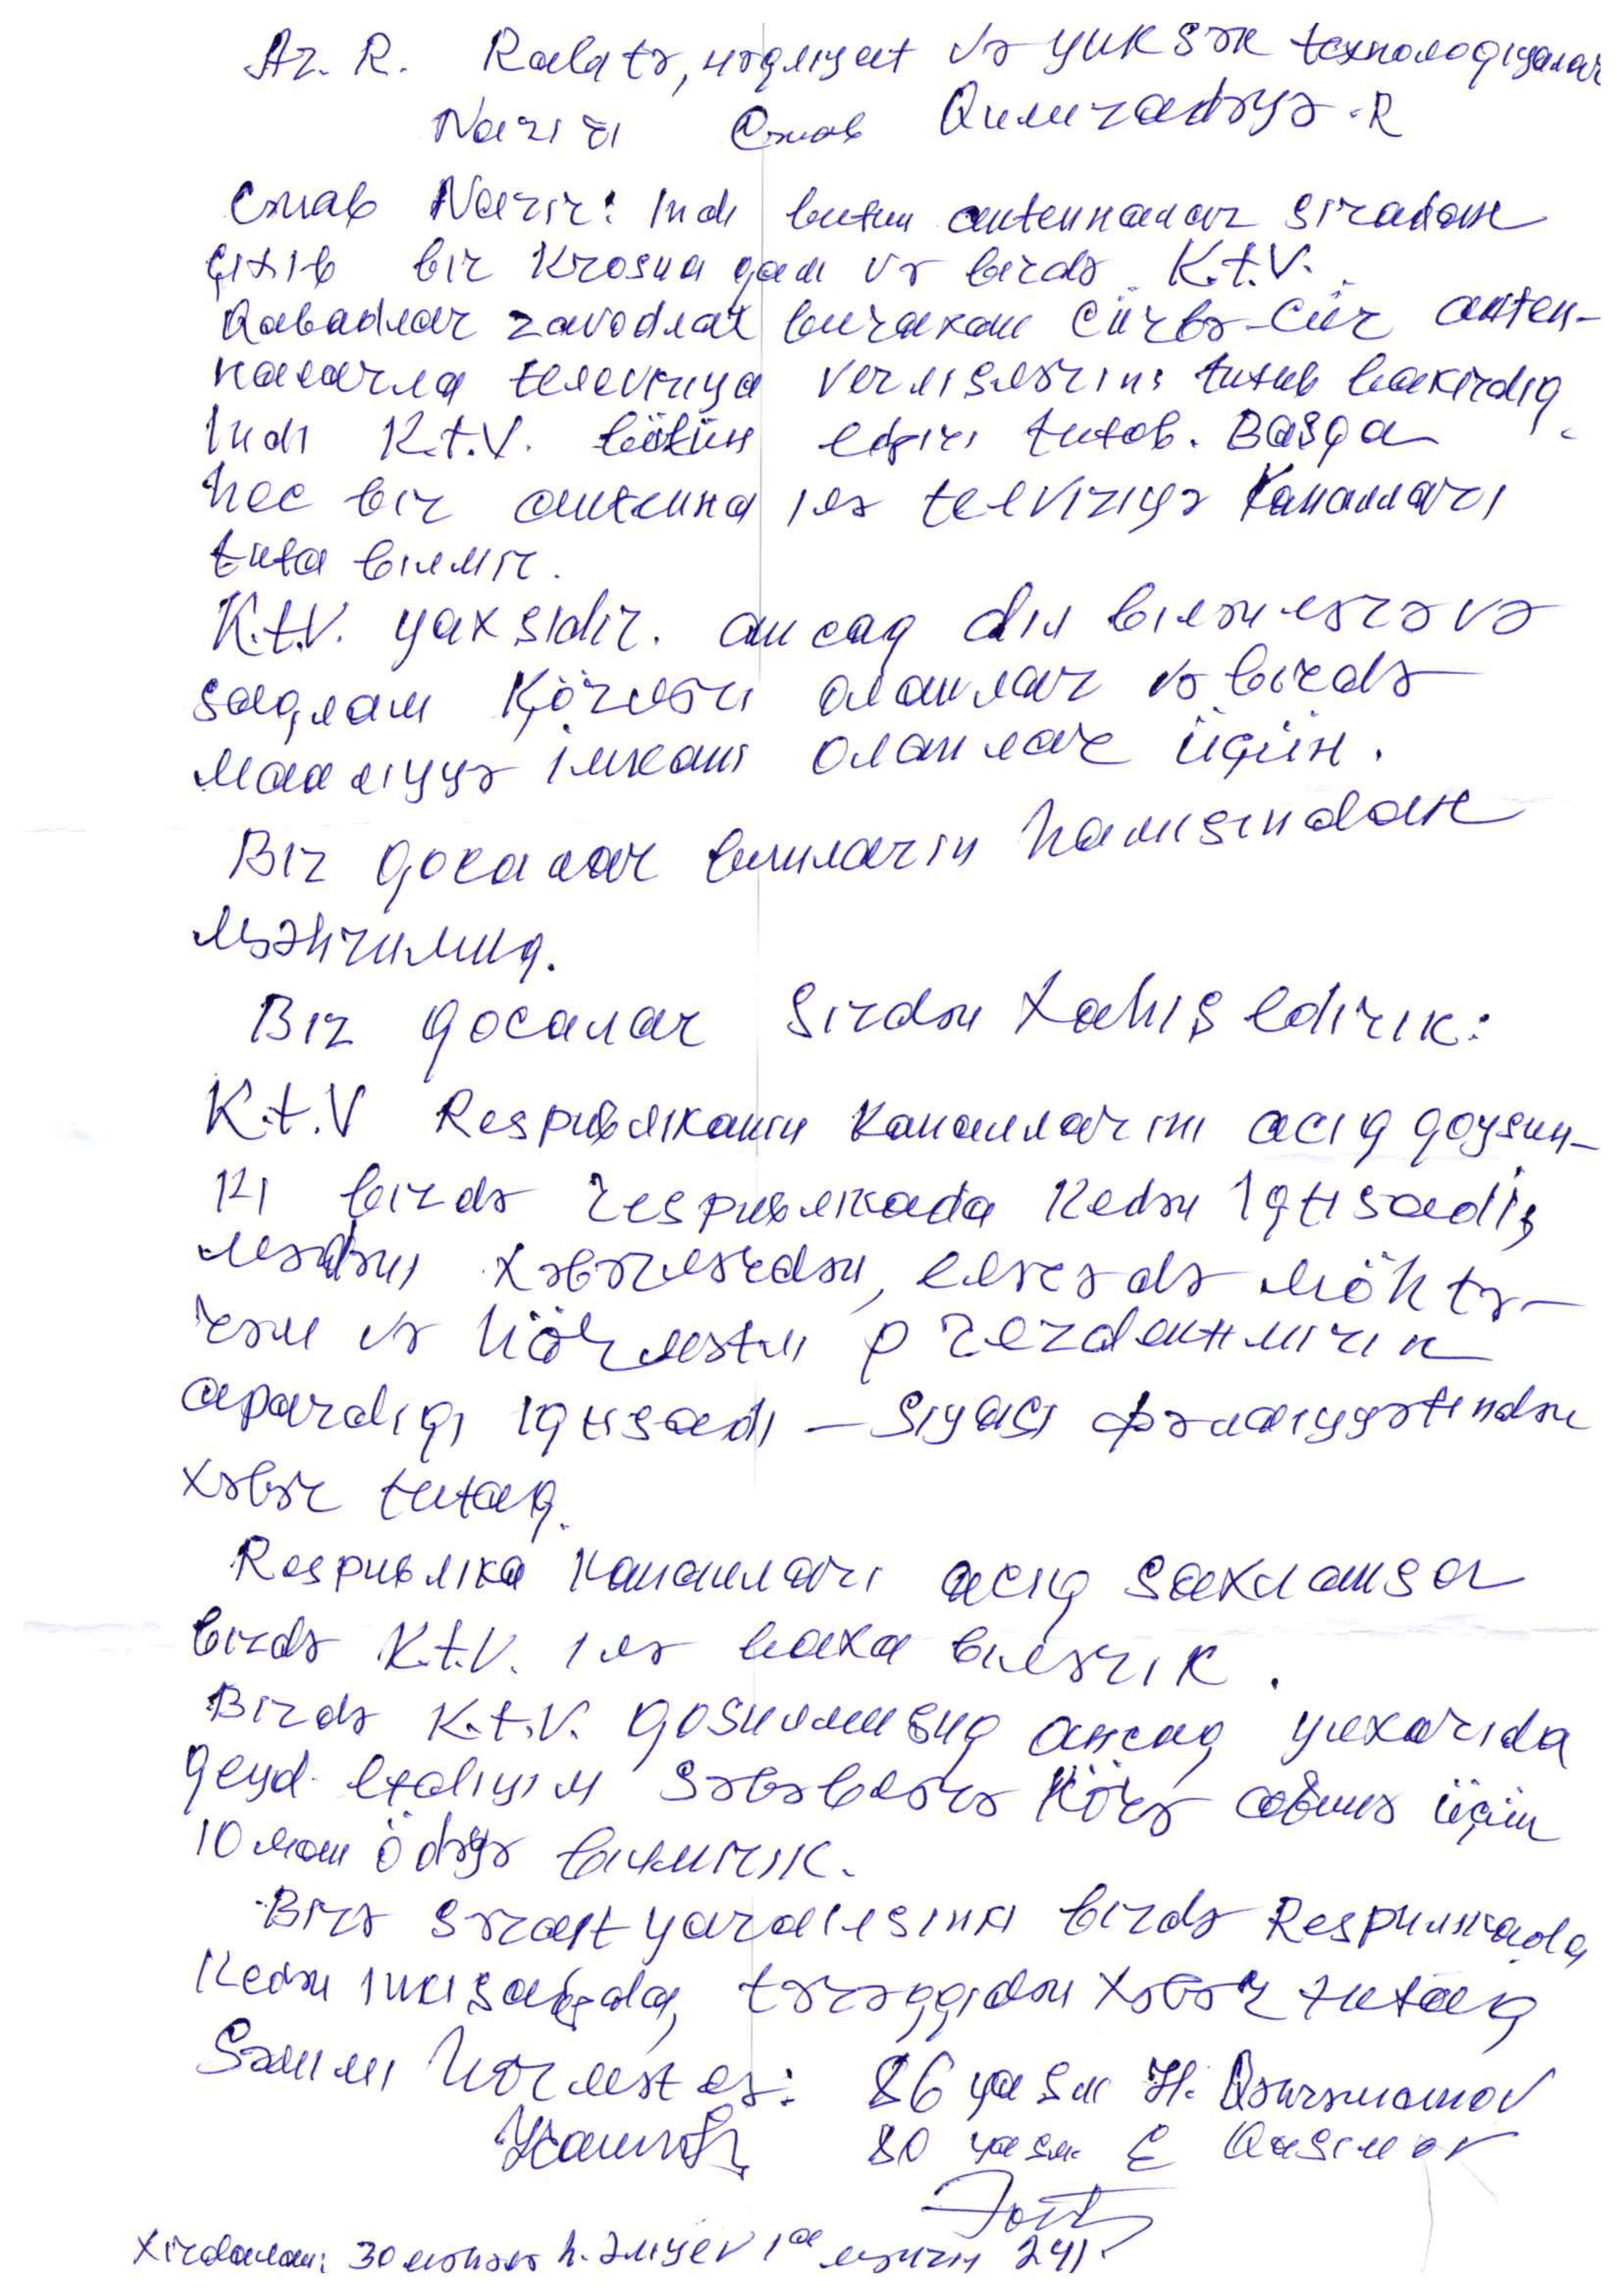 Az. R. Rabitə, nəqliyat və yuksək texnologiyalar
Naziri Cənab Quluzadəyə .R
Cənab Nazir: Indi butun antennalar sıradan
çıxıb bir krosna qalıb və birdə K.t.V.
Qabaqlar zavodlar buraxan cürbə-cür anten-
nalarla televiziya verlişlərini tutub baxırdıq
Indi K.t.V. bötün efiri tutob. Başqa
hec bir antenna ilə telviziyə kanalları
tuta bilmir.
K.t.V. yaxşıdır. ancaq dil bilənlərə və
sağlam gözləri olanlar və birdə
maaliyyə imkanı olanlar üçün.
Biz qocalar bunların hamısından
məəhrumuq.
Biz qocalar Sizdən xahış edirik:
K.t.V Respublikanın kanallarını acıq qoysun-
ki bizdə respublikada gedən iqtisadi,
mədəni xəbərlərdən, eləcədə möhtə-
rəm və hörmətli prezdentimizin
apardıgı iqtisadi – siyasi fəaliyyətindən
xəbər tutaq.
Respublika kanalları acıq saxlansa
bizdə K.t.V. ilə baxa bilərik.
Bizdə K.t.V. qoşulmuşuq ancaq yuxarıda
qeyd etdiyim səbəblərə görə abunə üçün
10 man ödəyə bilmirik.
Bizə şərait yaradılsınki bizdə Respublikada
gedən inkişafda, tərəqqidən xəbər tutaq
Səmimi hörmətlə: 86 yaşlı H. Qəhrəmanov
80 yaşlı E Qasımov
Xırdalan: 30 məhəllə h. Əliyev 1a mənzil 241.